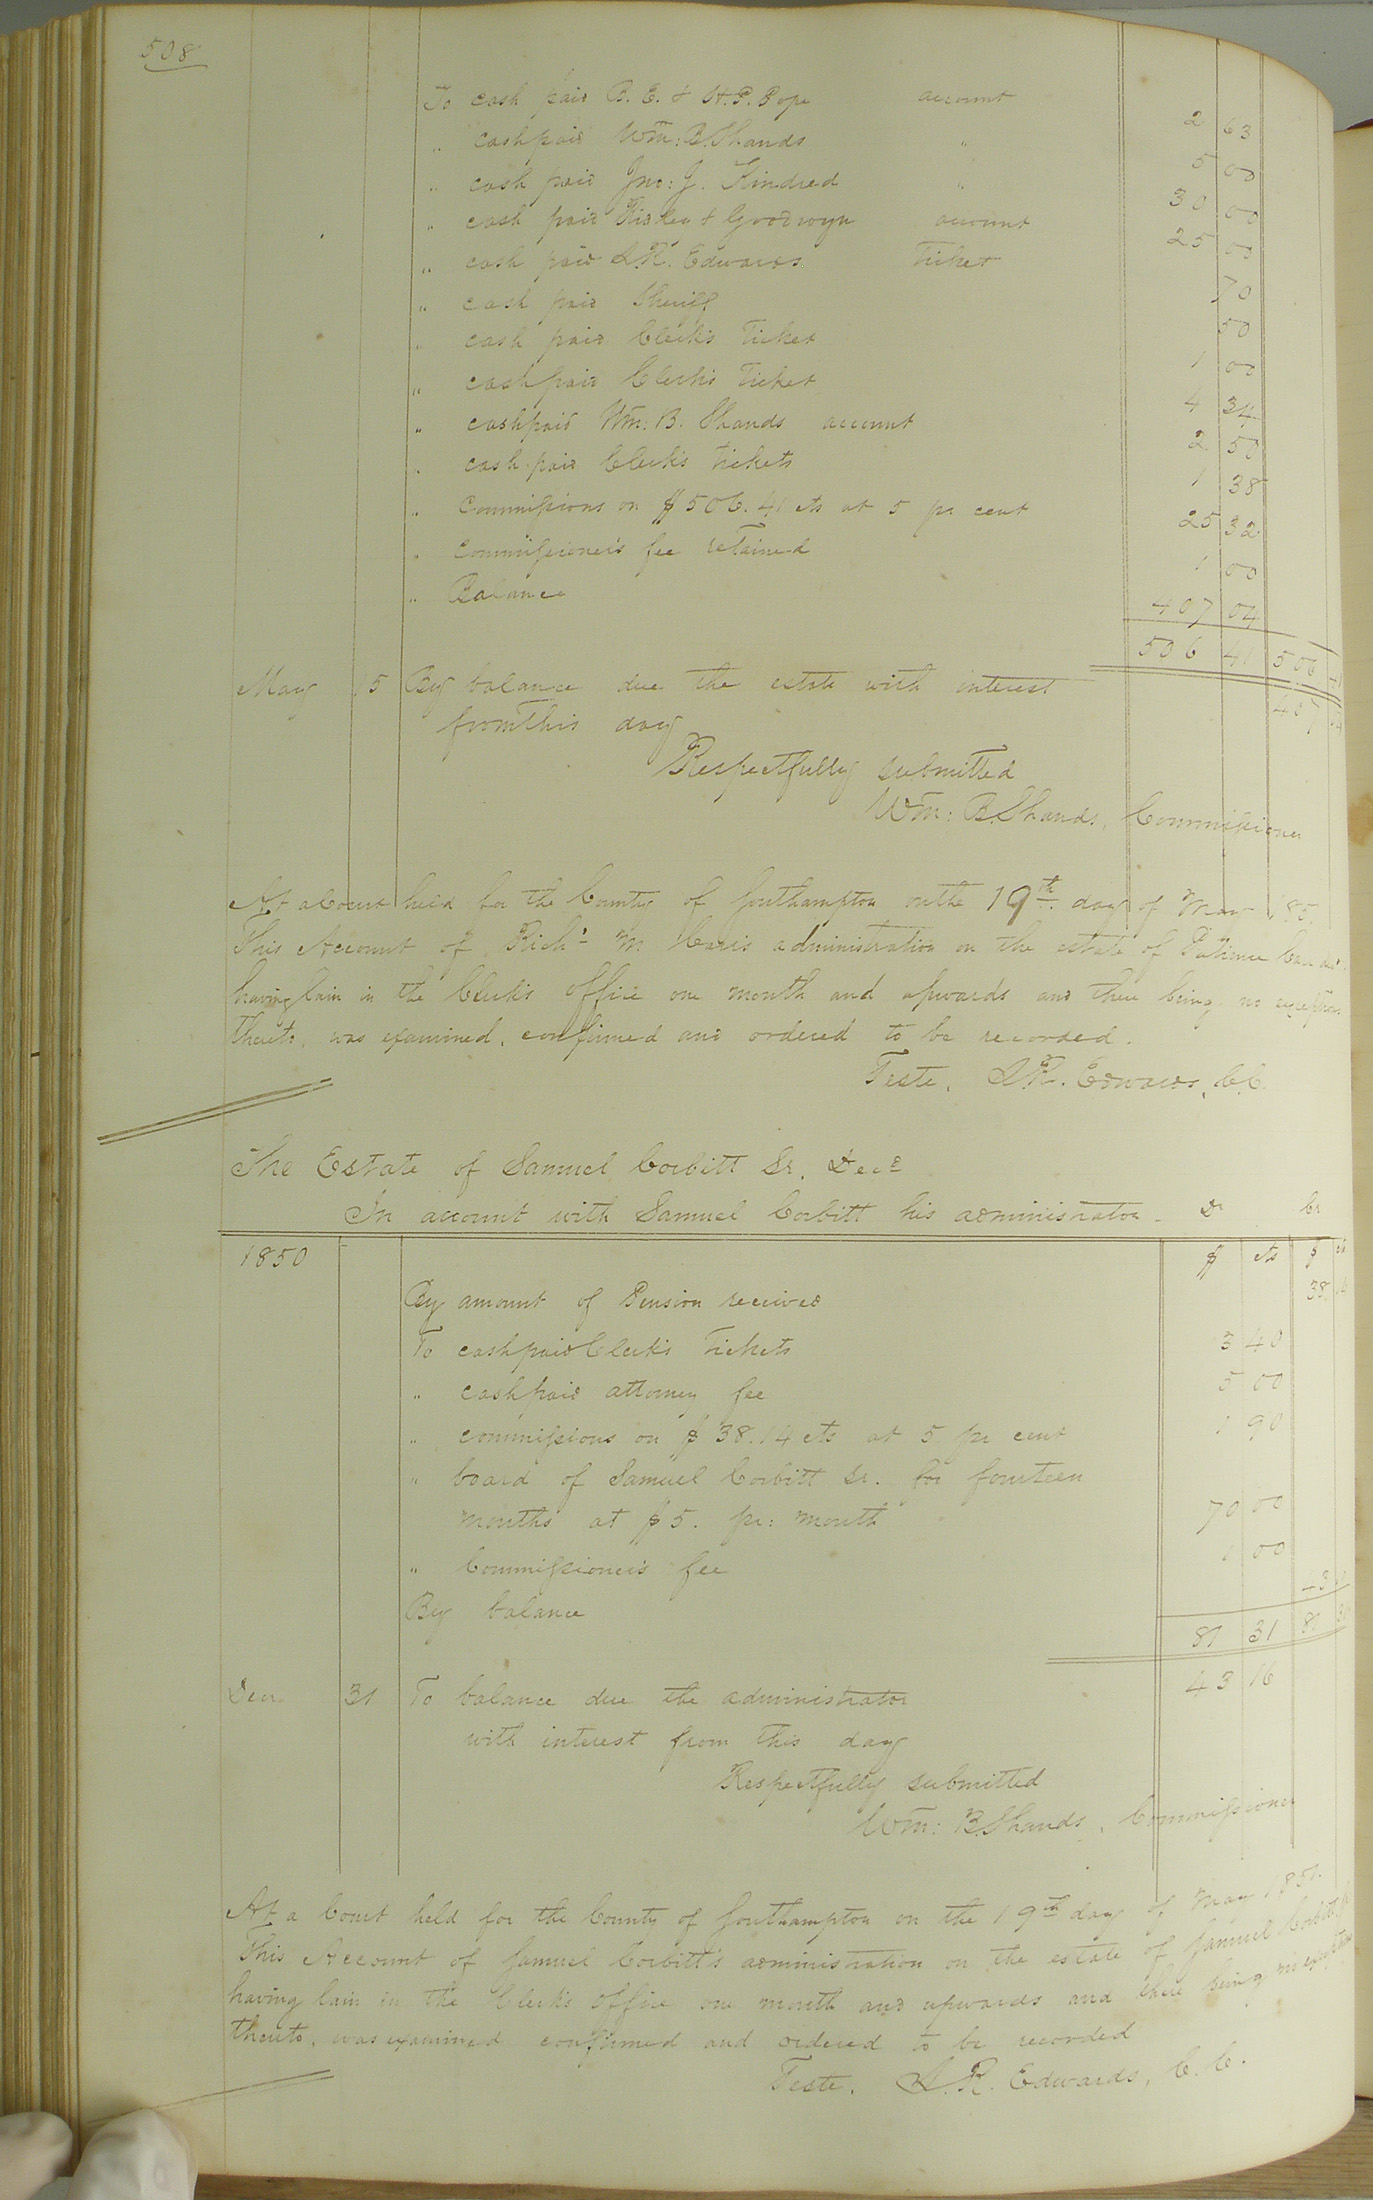 508
To cash paid B. E. & H. P. Pope account 2 63
" cash paid Wm: B. Shands " 5 00
" cash paid Jno: J. Kindred " 30 00
" cash paid & Goodwyn account 25 00
" cash paid L. R. Edwards Ticket 70
" cash paid Sheriff 50
" cash paid Clerk's Ticket 1 00
" cash paid Clerk's Ticket 4 34
" cash paid Wm: B. Shands account 2 50
" cash paid Clerk's Tickets 1 38
" Commissions on $506.41 cts at 5 pr cent 25 32
" Commissioner's fee retained 1 00
" Balance 407 04
506 41 506 41
May 15 By balance due the estate with interest 407 04
from this day
Respectfully submitted
Wm: B. Shands, Commissioner
At a Court held for the County of Southampton on the 19th day of May 185
This Account of Richd M administration on the estate of Patience
having lain in the Clerk's office one month and upwards and there being no exceptions
thereto, was examined, confirmed and ordered to be recorded.
Teste, L. R. Edwards, C. C.
The Estate of Samuel Corbitt Sr. Decd
In account with Samuel Corbitt his administrator Dr Cr
1850 $ cts $ cts
By amount of Pension received 38 14
To cash paid Clerk's Tickets 3 40
" cash paid attorney fee 5 00
" commissions on $38.14 cts at 5 pr cent 1 90
" board of Samuel Corbitt Sr. for fourteen
months at $5. pr: month 70 00
" Commissioner's fee 1 00
By balance 43
81 31 81 31
Decr 31 To balance due the administrator 43 16
with interest from this day
Respectfully submitted
Wm: B. Shands, Commissioner
At a Court held for the County of Southampton on the 19th day of May 1851.
This Account of Samuel Corbitt's administration on the estate of Samuel Corbitt
having lain in the Clerk's office one month and upwards and there being no exceptions
thereto, was examined confirmed and ordered to be recorded
Teste, L. R. Edwards, C. C.